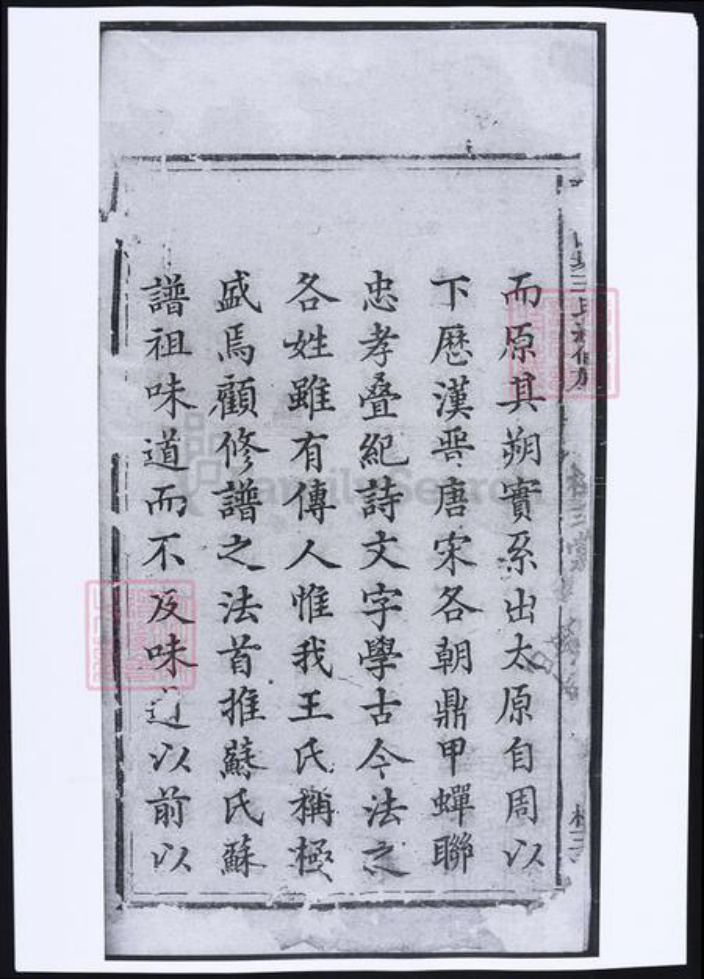 而原其朔實系出太原自周以
下歷漢晋唐宋各朝鼎甲蟬聯
忠孝叠紀詩文字學古今法之
各姓雖有傳人惟我王氏稱極
盛焉顧修譜之法首推蘇氏蘇
譜祖味道而不及味道以前以
FamilySearch